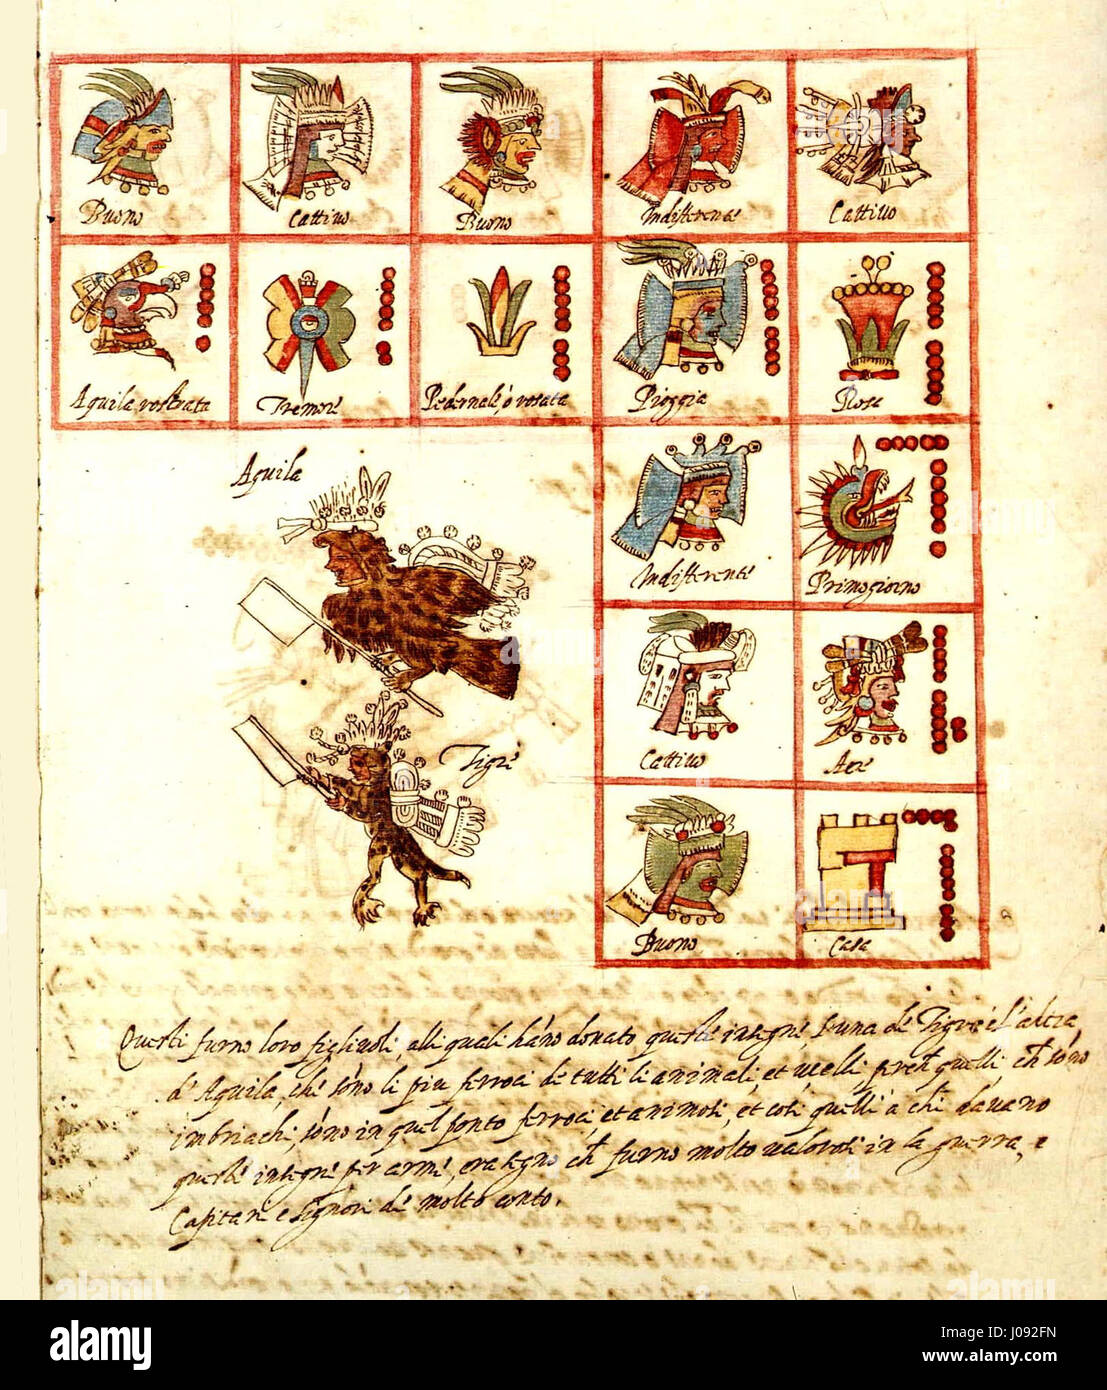 Buono Cattivo Buono Indifferente Cattivo
Aquila rostrata Tremore Pedernale, o rosata Pioggia Rosa
Aquila
Indifferente Primo giorno
Cattivo Aere
Tigre
Buono Casa
Questi furno loro figliuoli, alli quali hano donato queste insegne, l'una de Tigre e l'altra,
d'Aquila, che sono li piu feroci de tutti li animali, et ucelli perch quelli, ch sono
imbriachi, sono in quel ponto feroci, et animosi, et cosi quelli a chi davano
queste insegne per arme, era segno ch furno molto valorosi in la guerra, e
Capitani e signori de molto conto.
alamy
J092FN
www.alamy.com